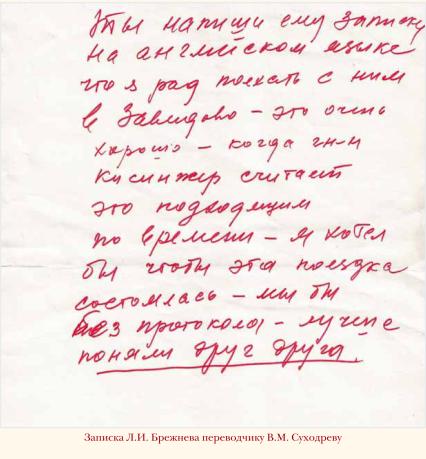 Ты напиши ему записку
на английском языке
что я рад поехать с ним
в Завидово – это очень
хорошо – когда г-н
Кисинжер считает
это подходящим
по времени – я хотел
бы чтобы эта поездка
состоялась – мы бы
без протокола – лучше
поняли друг друга.
Записка Л.И. Брежнева переводчику В.М. Суходреву